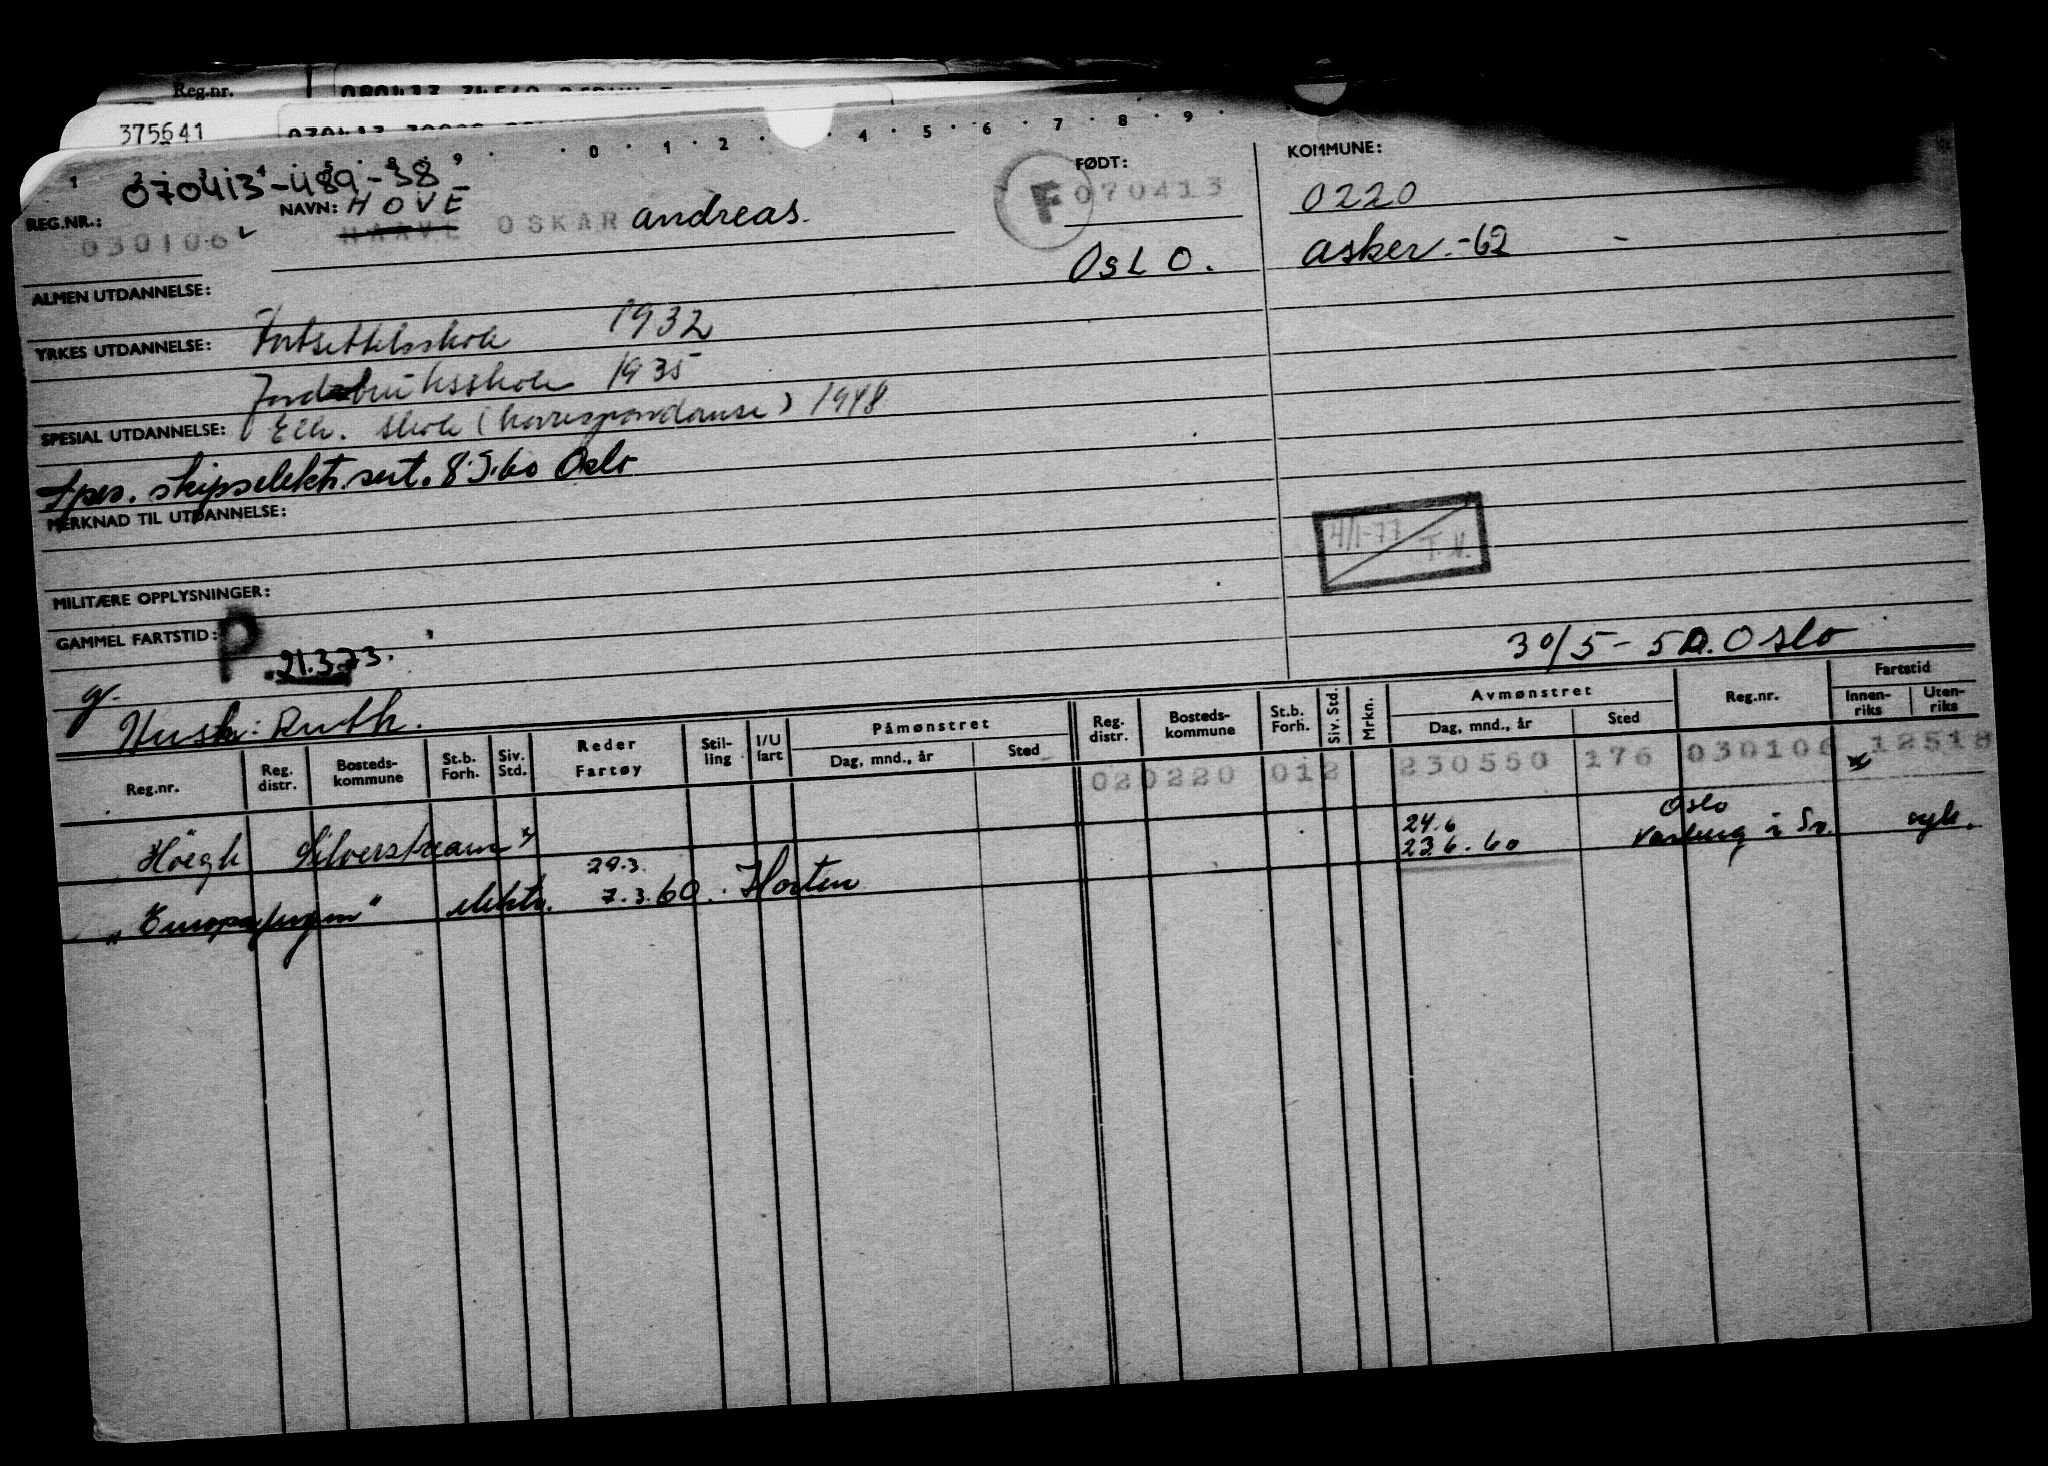 Reg.nr.
375641
1 2 3 4 5 8 9 0 1 2 4 5 6 7 8 9
070413-489-38
REG.NR.: 030106
NAVN: HOVE
HAAVE OSKAR andreas.
F
FØDT: 070413
OSLO.
KOMMUNE:
0220
asker -62
ALMEN UTDANNELSE:
YRKES UTDANNELSE: Fortsettelsskole 1932
Jordbruksskole 1935
SPESIAL UTDANNELSE: Elk. skole (korrespondanse) 1948
Spes. skipselektr. sert. 8.5.60 Oslo
MERKNAD TIL UTDANNELSE:
4/1-77 T.N.
MILITÆRE OPPLYSNINGER:
GAMMEL FARTSTID: P 21.3.73.
30/5-50. Oslo
Husk: Ruth.
Reg.nr. Reg. distr. Bosteds-kommune St.b. Forh. Siv. Std. Reder Fartøy Stil-ling I/U fart Påmønstret Dag, mnd., år Sted Reg. distr. Bosteds-kommune St.b. Forh. Siv. Std. Mrkn. Avmønstret Dag, mnd., år Sted Reg.nr. Fartstid Innen-riks Uten-riks
020220 012 230550 176 030106 12518
Höegh Silverstream x 24.6 Oslo
23.6.60 Varberg i Sv.
29.3.
"Europafrugen" elektr. 7.3.60. Horten